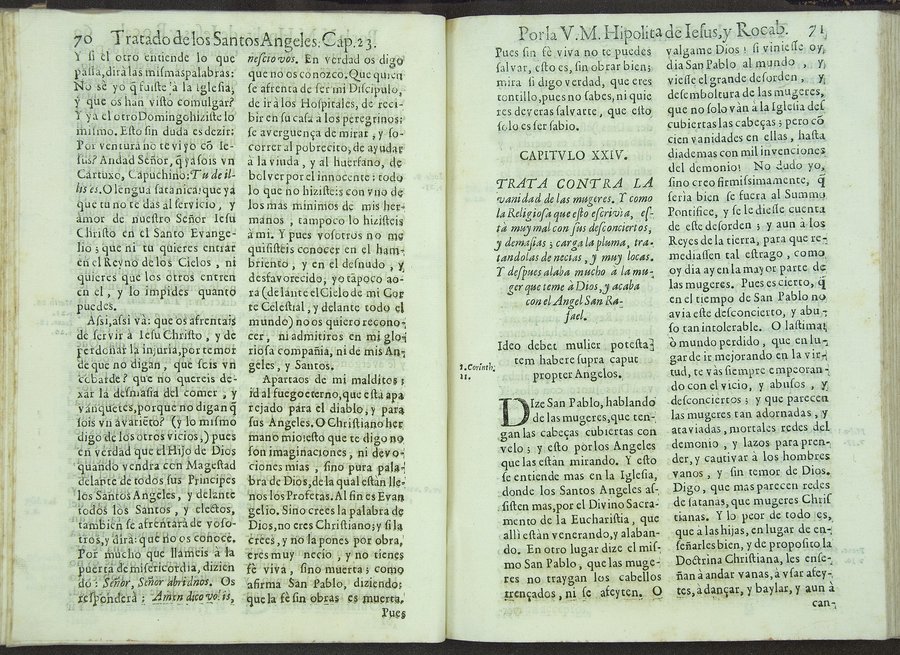 70 Tratado de los Santos Angeles: Cap. 23.
Y si el otro entiende lo que
passa, dirà las mismas palabras:
No sè yo q̃ fuiste à la Iglesia,
y que os han visto comulgar?
Y ya el otro Domingo hiziste lo
mismo. Esto sin duda es dezir:
Por ventura no te vi yo cõ Ie-
sus? Andad Señor, q̃ ya sois vn
Cartuxo, Capuchino: Tu de il-
lis es. O lengua satanica! que ya
que tu no te das al servicio, y
amor de nuestro Señor Iesu
Christo en el Santo Evange-
lio; que ni tu quieres entrar
en el Reyno de los Cielos, ni
quieres que los otros entren
en el, y lo impides quanto
puedes.
Assi, assi và: que os afrentais
de servir à Iesu Christo, y de
perdonar la injuria, por temor
de que no digan, que seis vn
cobarde? que no quereis de-
xar la demasia del comer, y
vanquetes, porque no digan q̃
sois vn avariẽto? (y lo mismo
digo de los otros vicios,) pues
en verdad que el Hijo de Dios
quando vendra con Magestad
delante de todos sus Principes
los Santos Angeles, y delante
todos los Santos, y electos,
tambien se afrentarà de voso-
tros, y dirà: que no os conoce.
Por mucho que llameis à la
puerta de misericordia, dizien
do: Señor, Señor abridnos. Os
responderà: Amen dico vobis,
nescio vos. En verdad os digo
que no os conozco. Que quien
se afrenta de ser mi Discipulo,
de ir à los Hospitales, de reci-
bir en su casa à los peregrinos:
se averguença de mirar, y so-
correr al pobrecito, de ayudar
à la viuda, y al huerfano, de
bolver por el innocente: todo
lo que no hizisteis con vno de
los mas minimos de mis her-
manos, tampoco lo hizisteis
à mi. Y pues vosotros no me
quisisteis conocer en el ham-
briento, y en el desnudo, y
desfavorecido; yo tãpoco ao-
ra (delante el Cielo de mi Cor
te Celestial, y delante todo el
mundo) no os quiero recono-
cer, ni admitiros en mi glo-
riosa compañia, ni de mis An-
geles, y Santos.
Apartaos de mi malditos;
id al fuego eterno, que està apa
rejado para el diablo, y para
sus Angeles. O Christiano her
mano mio; esto que te digo no
son imaginaciones, ni devo-
ciones mias, sino pura pala-
bra de Dios, de la qual estàn lle-
nos los Profetas. Al fin es Evan
gelio. Sino crees la palabra de
Dios, no eres Christiano; y si la
crees, y no la pones por obra,
eres muy necio, y no tienes
fè viva, sino muerta; como
afirma San Pablo, diziendo:
que la fè sin obras es muerta.
Pues
Por la V. M. Hipolita de Iesus, y Rocab. 71
Pues sin fè viva no te puedes
salvar, esto es, sin obrar bien;
mira si digo verdad, que eres
tontillo, pues no sabes, ni quie
res deveras salvarte, que esto
solo es ser sabio.
CAPITVLO XXIV.
TRATA CONTRA LA
vanidad de las mugeres. Y como
la Religiosa que esto escrivia, es-
ta muy mal con sus desconciertos,
y demasias; carga la pluma, tra-
tandolas de necias, y muy locas.
Y despues alaba mucho à la mu-
ger que teme à Dios, y acaba
con el Angel San Ra-
fael.
Ideo debet mulier potesta-
tem habere supra caput
propter Angelos.
1. Corinth.
11.
DIze San Pablo, hablando
de las mugeres, que ten-
gan las cabeças cubiertas con
velo; y esto por los Angeles
que las estàn mirando. Y esto
se entiende mas en la Iglesia,
donde los Santos Angeles as-
sisten mas, por el Divino Sacra-
mento de la Eucharistia, que
alli estàn venerando, y alaban-
do. En otro lugar dize el mis-
mo San Pablo, que las muge-
res no traygan los cabellos
trençados, ni se afeyten. O
valgame Dios! si viniesse oy
dia San Pablo al mundo, y
viesse el grande desorden, y
desemboltura de las mugeres,
que no solo vàn à la Iglesia des
cubiertas las cabeças; pero cõ
cien vanidades en ellas, hasta
diademas con mil invenciones
del demonio! No dudo yo,
sino creo firmissimamente, q̃
seria bien se fuera al Summo
Pontifice, y se le diesse cuenta
de este desorden; y aun à los
Reyes de la tierra, para que re-
mediassen tal estrago, como
oy dia ay en la mayor parte de
las mugeres. Pues es cierto, q̃
en el tiempo de San Pablo no
avia este desconcierto, y abu-
so tan intolerable. O lastima!
ò mundo perdido, que en lu-
gar de ir mejorando en la vir-
tud, te vàs siempre empeoran-
do con el vicio, y abusos, y
desconciertos; y que parecen
las mugeres tan adornadas, y
ataviadas, mortales redes del
demonio, y lazos para pren-
der, y cautivar à los hombres
vanos, y sin temor de Dios.
Digo, que mas parecen redes
de satanas, que mugeres Chris
tianas. Y lo peor de todo es,
que a las hijas, en lugar de en-
señarles bien, y de proposito la
Doctrina Christiana, les ense-
ñan à andar vanas, à vsar afey-
tes, à dançar, y baylar, y aun à
can-